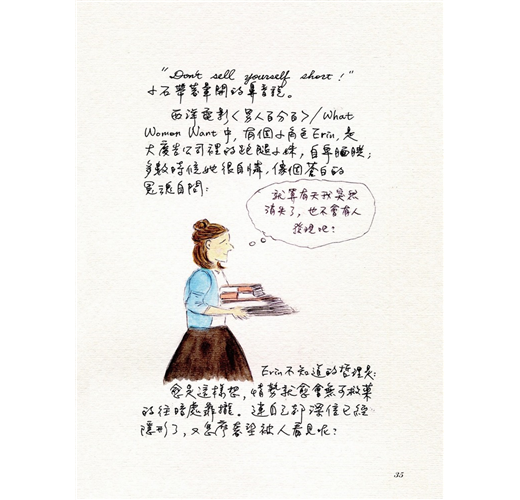 "Don't sell yourself short!"
小石帶著韋開的鼻音說。
西洋電影<男人百分百>/What
Women Want中，有個小角色Erin，是
大廣告公司裡的跑腿小妹，自卑
多數時候她很自憐，像個蒼白的
鬼魂自問：
就算有天我突然
消失了，也不會有人
發現吧？
Erin不知道的哲理是：
愈是這樣想，情勢就愈會無可救藥
的往暗處靠攏。連自己都深信已經
隱形了，又怎麼奢望被人看見呢？
35